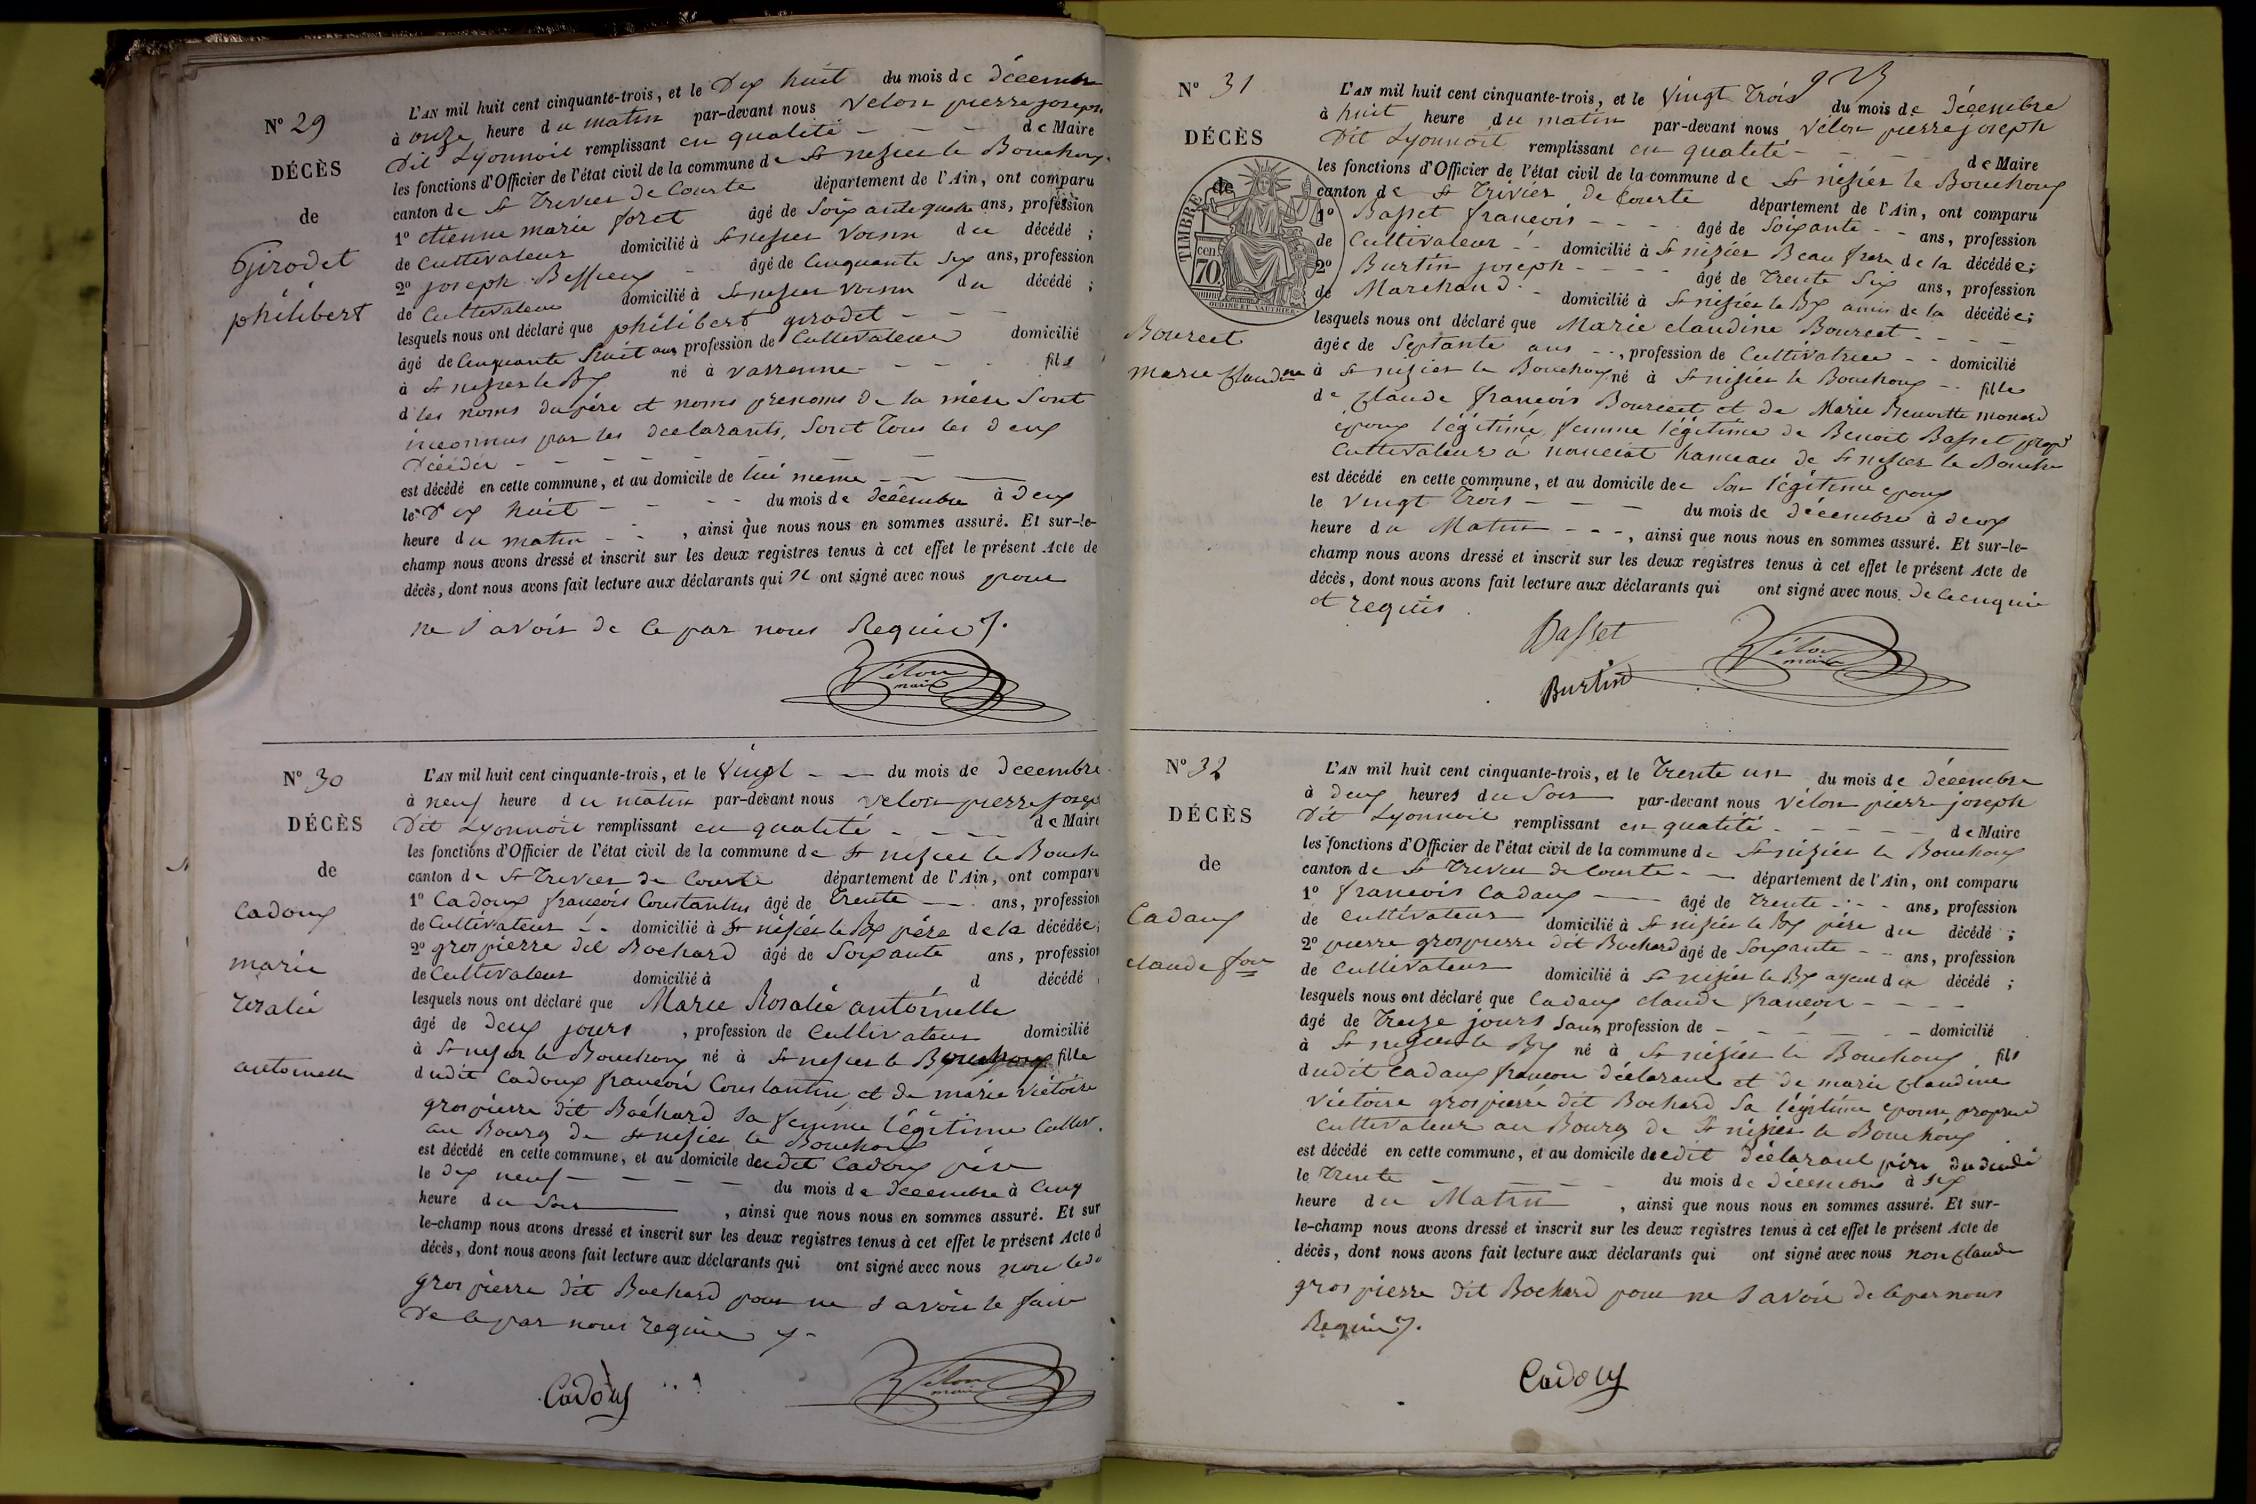 N° 29
DÉCÈS
de
Girodet
philibert
L'AN mil huit cent cinquante-trois, et le Dix huit du mois de décembre
à onze heure du matin par-devant nous Velon pierre joseph
Dit Lyonnois remplissant en qualité - - - de Maire
les fonctions d'Officier de l'état civil de la commune de St nisier le Bouchoux
canton de St Trivier de Courte département de l'Ain, ont comparu
1° etienne marie foret âgé de Soixante quatre ans, profession
de Cultivateur domicilié à St nisier voisin du décédé ;
2° joseph Bessieux - âgé de Cinquante six ans, profession
de Cultivateur domicilié à St nisier voisin du décédé ;
lesquels nous ont déclaré que philibert girodet - - -
âgé de Cinquante huit ans profession de Cultivateur domicilié
à St nisier le Bx né à varenne - - - fils
d les noms du père et noms prenoms de la mère Sont
inconnus par les déclarants, Sont Tous les deux
Décédés - - - - - - -
est décédé en cette commune, et au domicile de lui même - - -
le Dix huit - - - - du mois de décembre à deux
heure du matin - - , ainsi que nous nous en sommes assuré. Et sur-le-
champ nous avons dressé et inscrit sur les deux registres tenus à cet effet le présent Acte de
décès, dont nous avons fait lecture aux déclarants qui n ont signé avec nous pour
ne Savoir de Ce par nous Requis.
Vélon
maire
N° 30
DÉCÈS
de
Cadoux
marie
rosalie
antoinette
L'AN mil huit cent cinquante-trois, et le Vingt - - du mois de décembre
à neuf heure du matin par-devant nous velon pierre josep
Dit Lyonnois remplissant en qualité - - - de Maire
les fonctions d'Officier de l'état civil de la commune de St nisier le Bouch
canton de St Trivier de Courte département de l'Ain, ont comparu
1° Cadoux françois Constantin âgé de Trente - - ans, profession
de Cultivateur - - domicilié à St nisier le Bx père de la décédée ;
2° grospierre dit Bochard âgé de Soixante ans, profession
de Cultivateur domicilié à d décédé
lesquels nous ont déclaré que Marie Rosalie antoinette
âgé de deux jours , profession de Cultivateur domicilié
à St nisier le Bouchoux né à St nisier le Bouchoux fille
dudit Cadoux françois Constantin et de marie Victoire
grospierre dit Bochard Sa femme légitime Cultiv.
au Bourg de St nisier le Bouchoux
est décédé en cette commune, et au domicile dudit Cadoux père
le dix neuf - - - - du mois de décembre à Cinq
heure du Soir , ainsi que nous nous en sommes assuré. Et sur
le-champ nous avons dressé et inscrit sur les deux registres tenus à cet effet le présent Acte d
décès, dont nous avons fait lecture aux déclarants qui ont signé avec nous non ledit
grospierre dit Bochard pour ne Savoir le faire
de Ce par nous requis
Cadoux
Vélon
maire
N° 31
DÉCÈS
de
TIMBRE
70 cen
OUDINÉ ET VAUTHIER
Bourcet
marie Claudine
L'AN mil huit cent cinquante-trois, et le Vingt Trois du mois de décembre
à huit heure du matin par-devant nous vélon pierre joseph
Dit Lyonnoit remplissant en qualité - - - de Maire
les fonctions d'Officier de l'état civil de la commune de St nisier le Bouchoux
canton de St Trivier de Courte département de l'Ain, ont comparu
1° Basset françois - - - âgé de Soixante - - ans, profession
de Cultivateur - - domicilié à St nisier Beau frere de la décédée ;
2° Burtin joseph - - - - âgé de Trente Six ans, profession
de Marchand - domicilié à St nisier le Bx amis de la décédée ;
lesquels nous ont déclaré que Marie claudine Bourcet - - - -
âgée de Septante ans - - , profession de Cultivatrice - - domicilié
à St nisier le Bouchoux né à St nisier le Bouchoux - - fille
de Claude françois Bourcet et de Marie Benoitte monard
epoux légitime, femme légitime de Benoit Basset propre
Cultivateur à nanciat hameau de St nisier le Bouchx
est décédé en cette commune, et au domicile de Son légitime epoux
le Vingt Trois - - - du mois de décembre à deux
heure du Matin - - - , ainsi que nous nous en sommes assuré. Et sur-le-
champ nous avons dressé et inscrit sur les deux registres tenus à cet effet le présent Acte de
décès, dont nous avons fait lecture aux déclarants qui ont signé avec nous de ce enquis
et requis
Basset
Vélon
maire
Burtin
N° 32
DÉCÈS
de
Cadaux
claude fois
L'AN mil huit cent cinquante-trois, et le Trente un du mois de décembre
à deux heures du Soir par-devant nous vélon pierre joseph
Dit Lyonnoit remplissant en qualité - - - - - de Maire
les fonctions d'Officier de l'état civil de la commune de St nisier le Bouchoux
canton de St Trivier de Courte - - département de l'Ain, ont comparu
1° françois Cadaux - âgé de Trente - - - ans, profession
de Cultivateur domicilié à St nisier le Bx père du décédé ;
2° pierre grospierre dit Bochard âgé de Soixante - - ans, profession
de Cultivateur domicilié à St nisier le Bx ayeul du décédé ;
lesquels nous ont déclaré que Cadaux claude françois - - - -
âgé de Treize jours Sans profession de - - - - - domicilié
à St nisier le Bx né à St nisier le Bouchoux fils
dudit Cadaux françois déclarant et de marie Claudine
Victoire grospierre dit Bochard Sa légitime epouse propre
Cultivateur au Bourg de St nisier le Bouchoux
est décédé en cette commune, et au domicile dudit déclarant père du
le Trente - - - - du mois de décembre à Six
heure du Matin , ainsi que nous nous en sommes assuré. Et sur-
le-champ nous avons dressé et inscrit sur les deux registres tenus à cet effet le présent Acte de
décès, dont nous avons fait lecture aux déclarants qui ont signé avec nous non Claude
grospierre dit Bochard pour ne Savoir de ce par nous
Requis.
Cadoux